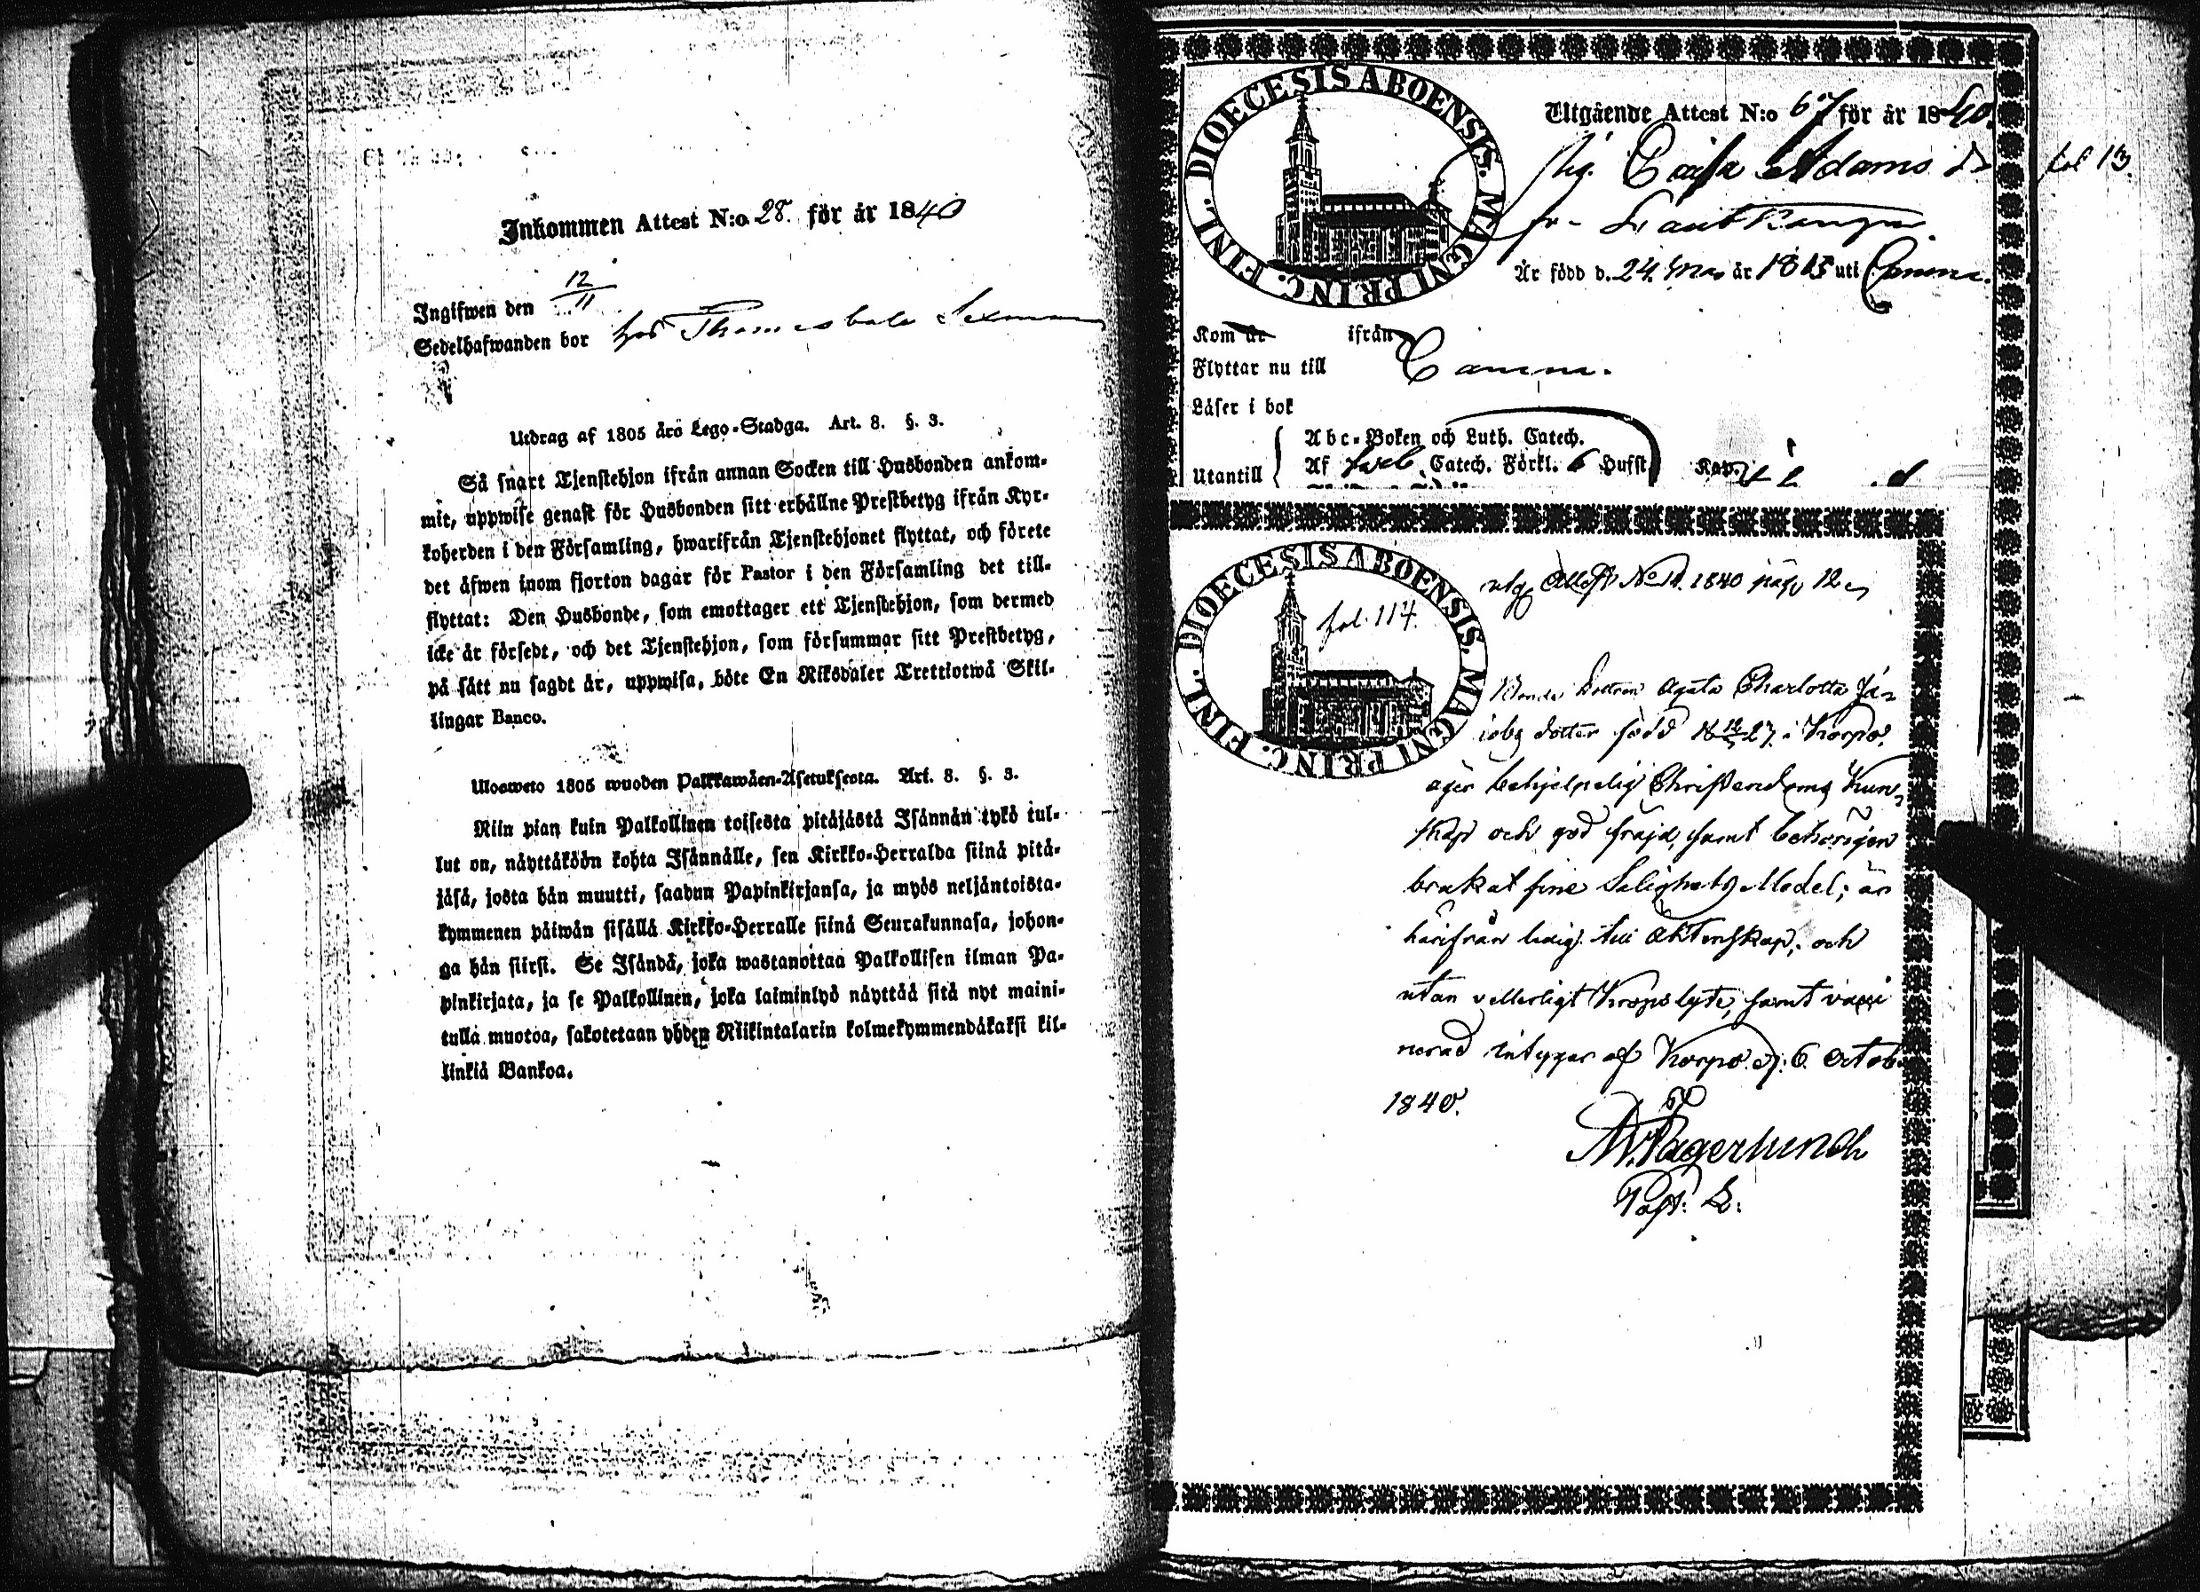 Inkommen Attest N:o 28. för år 1840
Ingifwen den 12/11
Sedelhafwanden bor hos Thomesbole
Utdrag af 1805 års Lego-Stadga. Art. 8. §. 3.
Så snart Tjenstehjon ifrån annan Socken till Husbonden ankom-
mit, uppwise genast för Husbonden sitt erhållne Prestbetyg ifrån Kyr-
koherden i den Församling, hwarifrån Tjenstehjonet flyttat, och förete
det äfwen inom fjorton dagar för Pastor i den Församling det till-
flyttat: Den Husbonde, som emottager ett Tjenstehjon, som dermed
icke är försedt, och det Tjenstehjon, som försummar sitt Prestbetyg,
på sätt nu sagdt är, uppwisa, böte En Riksdaler Trettiotwå Skil-
lingar Banco.
Ulosweto 1805 wuoden Palkkawäen-Asetuksesta. Art. 8. §. 3.
Niin pian kuin Palkollinen toisesta pitäjästä Isännän tykö tul-
lut on, näyttäköön kohta Isännälle, sen Kirkko-Herralda siinä pitä-
jäsä, josta hän muutti, saadun Papinkirjansa, ja myös neljäntoista-
kymmenen päiwän sisällä Kirkko-Herralle siinä Seurakunnasa, johon-
ga hän siirsi. Se Isändä, joka wastanottaa Palkollisen ilman Pa-
pinkirjata, ja se Palkollinen, joka laiminlyö näyttää sitä nyt maini-
tulla muotoa, sakotetaan yhden Riikintalarin kolmekymmendäkaksi kil-
linkiä Bankoa.
DIOECESIS ABOENSIS. MAGNI PRINC. FINL.
Utgående Attest N:o 67 för år 1840.
Pig. Caisa Adams dr fol 13
fr
Är född d. 24 Maj år 1815 uti Cammi
Kom år ifrån
Flyttar nu till Camm.
Läser i bok
Abc-Boken och Luth. Catech.
Utantill Af Catech. Förkl. 6 Hufst. Kap.
DIOECESIS ABOENSIS. MAGNI PRINC. FINL.
fol. 114.
utg Attest No 1840 pag 12
Bonde dottren Agata Charlotta Ja-
cobs dotter född 18 27. i Korpo,
äger behjelpelig Christendoms Kun-
skap och god fräjd, samt behörigen
brukat sine Salighets Medel; är
härifrån ledig till Äktenskap, och
utan vetterligt Kropslyte, samt vacci
nerad intygar af Korpo d. 6 Octob.
1840.
Fagerlund
Past. L.